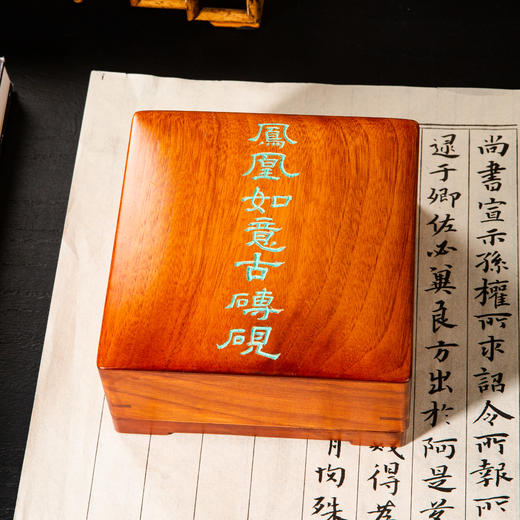 鳳凰如意古磚硯
尚書宣示孫權所求詔令所報所
逮于卿佐必冀良方出於阿是芻
得
均殊